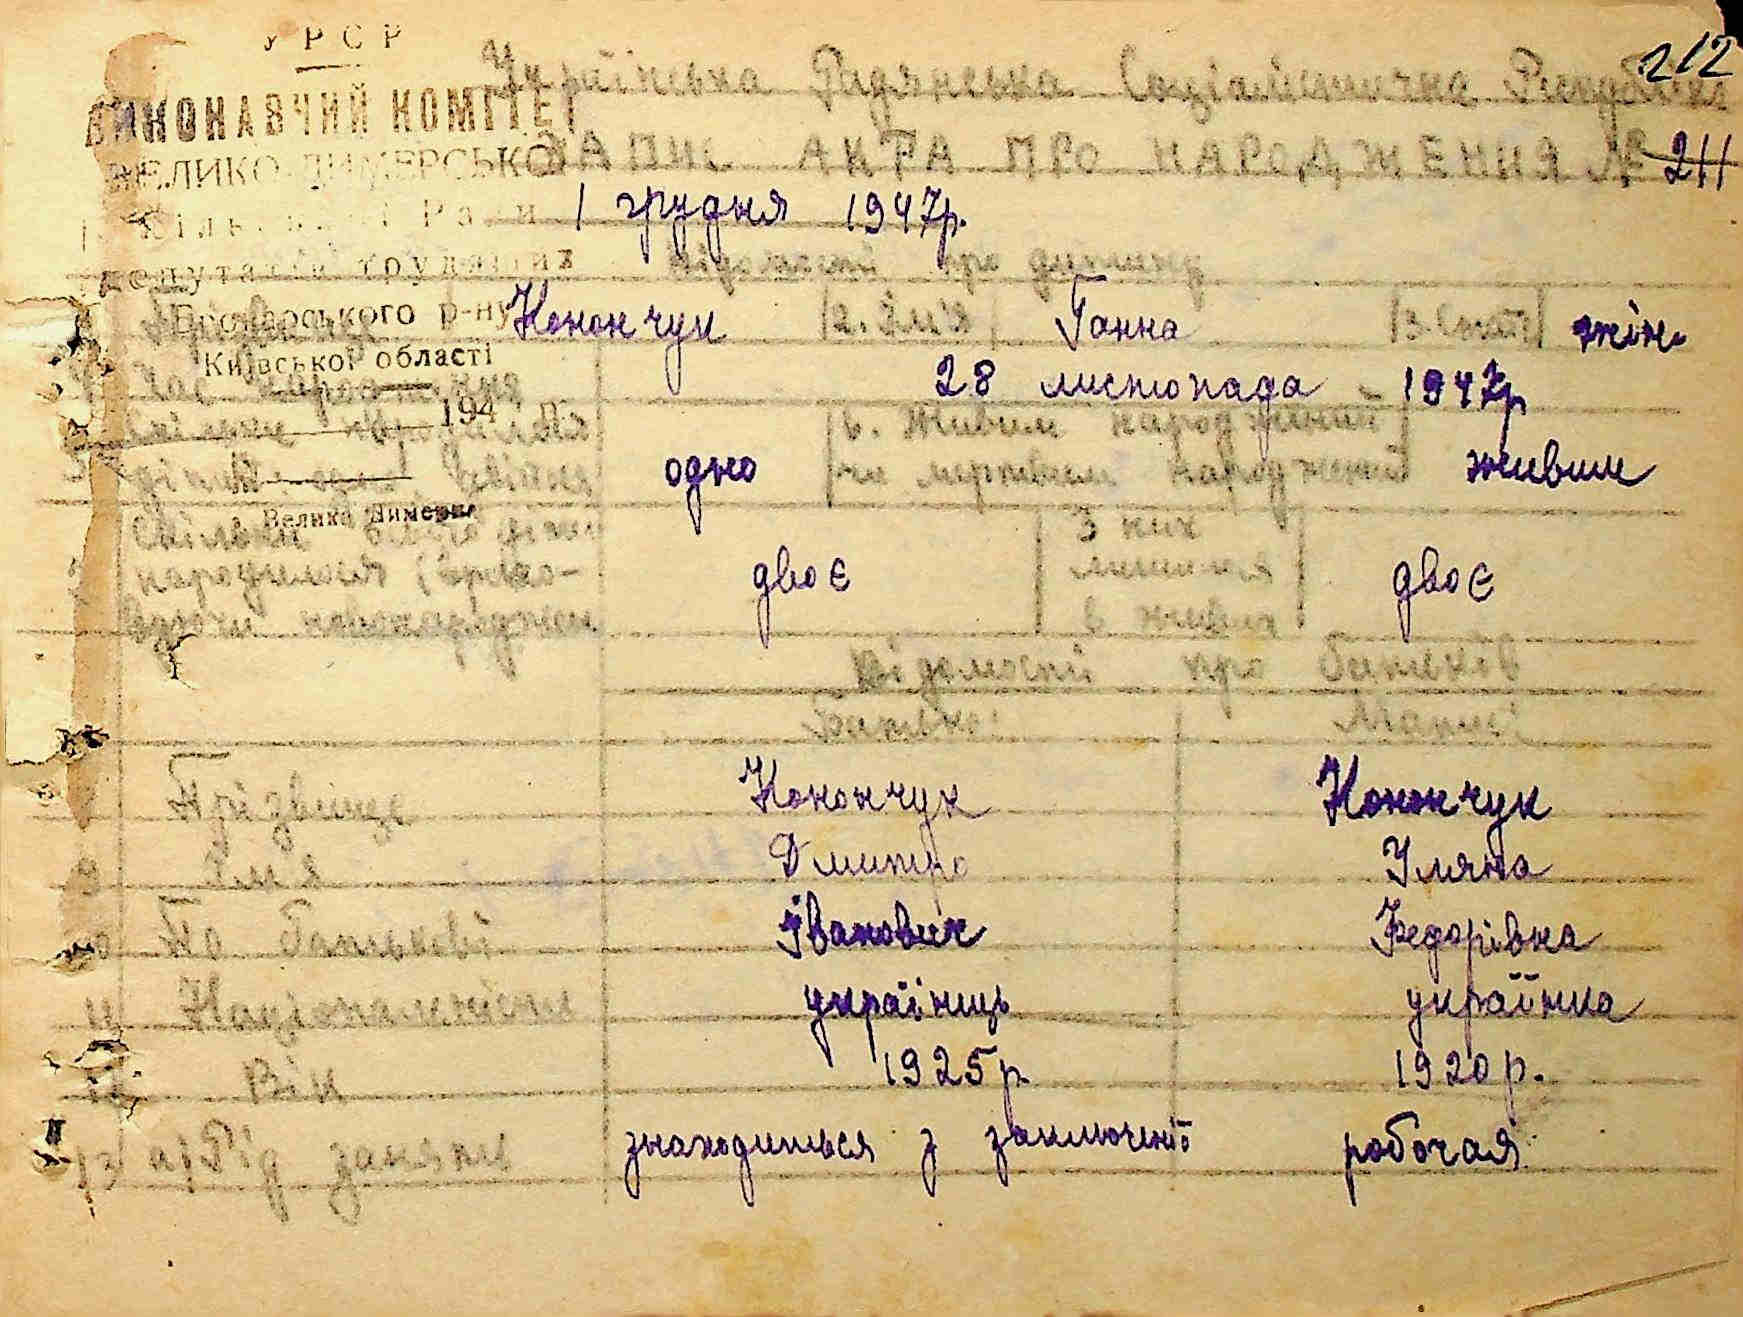 212
УРСР
Українська Радянська Соціалістична Республіка
ВИКОНАВЧИЙ КОМІТЕТ
ВЕЛИКО-ДИМЕРСЬКОЇ
ЗАПИС АКТА ПРО НАРОДЖЕННЯ № 211
Сільської Ради
1 грудня 1947р.
депутатів трудящих
Відомості про дитину
Броварського р-ну
Прізвище Конончук 2. Імя Ганна 3. Стать жін.
Київської області
Час народження 28 листопада 1947р
194 р.
Скільки народилося
дітей: одно, двійня одно
6. Живим народжений
чи мертвим народжений живим
с. Велика Димерка
Скільки всього дітей
народилося (врахо-
вуючи новонароджен двоє
З них
лишилися
в живих двоє
Відомості про батьків
Батько: Мати:
8 Прізвище Конончук Конончук
9 Імя Дмитро Уляна
10 По батькові Іванович Федорівна
11 Національність українець українка
12 Вік 1925р. 1920р.
13 а) Рід занять знаходиться з заключенії робочая